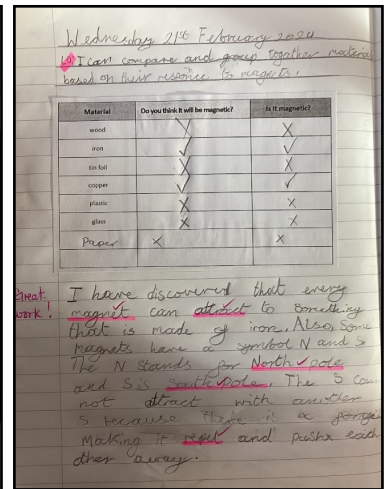 Wednesday 21st February 2024
LO I can compare and group together material
based on their responce to magnets.
Material Do you think it will be magnetic? Is it magnetic?
wood X X
iron ✓ ✓
tin foil X X
copper ✓ ✓
plastic X X
glass X X
Paper X X
Great work!
I have discovered that every
magnet can attract to something
that is made of iron. Also, some
magnets have a symbol N and S
The N stands for North pole
and S is South pole. The S can
not attract with another
S because there is a
making it repel and pushx each
other away.